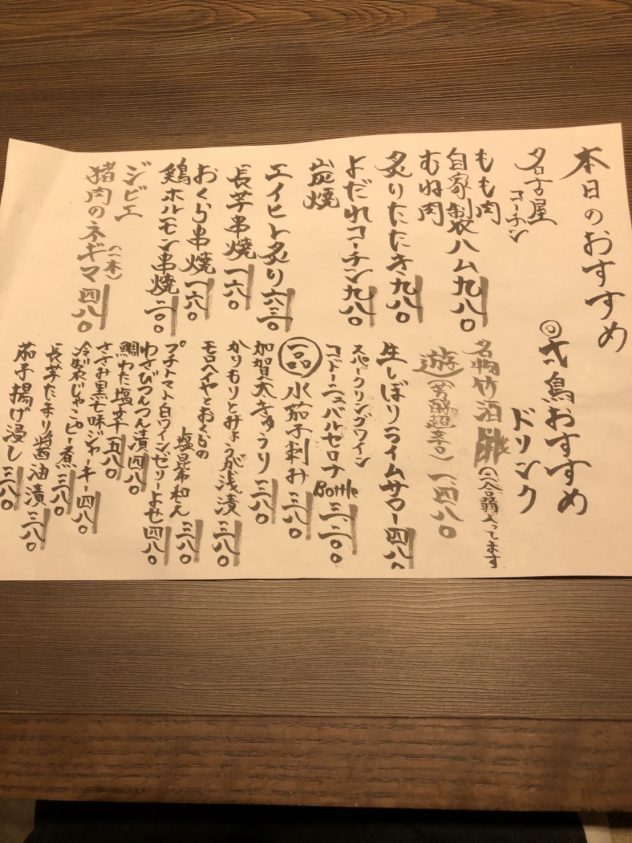 本日のおすすめ
名古屋
コーチン
もも肉
自家製ハム九八〇
むね肉
炙りたたき九八〇
よだれコーチン九八〇
炭焼
エイヒレ炙り六三〇
長芋串焼一六〇
おくら串焼一六〇
鶏ホルモン串焼
ジビエ
猪肉のネギマ(一本)四八〇
◎弐鳥おすすめ
ドリンク
名物竹酒
(二合弱入ってます)
遊(芳醇超辛口)一、四八〇
生しぼりライムサワー四八〇
スパークリングワイン
コドーニュバルセロナ
Bottle三、二〇〇
一品
水茄子刺み三八〇
加賀太きゅうり三八〇
かりもりとみょうが浅漬三八〇
モロヘイヤとおくらの
塩昆布和え三八〇
プチトマト白ワインゼリーよせ四八〇
わさびつんつん漬四八〇
鯛わた塩辛五八〇
ささみ黒七味ジャーキー四八〇
冷製じゃこピー煮三八〇
長芋たまり醤油漬三八〇
茄子揚げ浸し三八〇